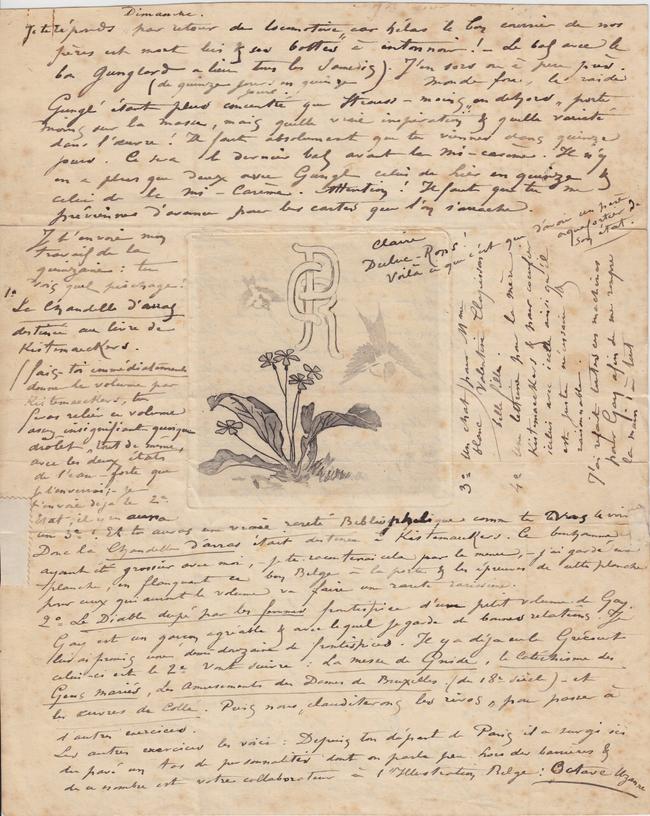 Dimanche.
Je te réponds par retour de locomotive, car hélas le bon courrier de nos
pères est mort lui & ses bottes à entonnoir ! – Le bal avec le
bon Gunglord a lieu tous les Samedis. J'en sors ou à peu près.
(de quinze jours en quinze jours.) Monde fou, le raide
Gung'l étant plus concentré que Strauss – moins "en dehors", porte
moins sur la masse, mais quelle vraie inspiration & quelle variété
dans l'œuvre ! Il faut absolument que tu viennes dans quinze
jours. Ce sera le dernier bal avant la mi-carême. Il n'y
en a plus que deux avec Gungl celui de hier en quinze &
celui de la mi-Carême. Attention ! Il faut que tu me
préviennes d'avance pour les cartes que l'on s'arrache.
Je t'envoie mon
travail de la
quinzaine : tu
vois quel piochage !
1º
La Chandelle d'arras
destinée au livre de
Kistmaeckers.
fais-toi immédiatement
donner le volume par
Kistemaeckers, tu
feras relier ce volume
assez insignifiant quoique
drolet, tout de même
avec les deux états
de l'eau-forte que
je t'enverrai; – Je
t'envoie déjà le 2me
état, il y en aura
un 3e ! Et tu auras une vraie rareté Bibliophilique comme tu vas le voir
Claire
Duluc-Rops !
Voilà ce que c'est que
d'avoir un père
aquafortiste de
son état.
3º un chat pour Mme
blanc Valentine
belle fille.
4º une lettrine par la même
Kistmaeckers &
celui avec celle ainsi qu'il
est juste nécessaire &
raisonnable.
J'ai refait toutes ces machines
pour Gay afin de me
la main à tout
Donc la Chandelle d'arras était destinée à Kistemaeckers. Ce bonhomme
ayant été grossier avec moi, – je te raconterai cela par le menu, – j'ai gardé ma
planche, en flanquant ce bon Belge à la porte & les épreuves de cette planche
pour ceux qui auront le volume va faire un rareté rarissime.
2º Le Diable dupé par les femmes frontispice d'un petit volume de Gay.
Gay est un garçon agréable & avec lequel je garde de bonnes relations. Je
lui ai promis une demi douzaine de frontispices. Il y a déjà eu le Grécourt
celui-ci est le 2e Vont suivre : La messe de Gnide, le Catéchisme des
Gens Mariés, les Amusements des Dames de Bruxelles (du 18e siècle) – et
les œuvres de Collé. Puis nous "clauditerons les rivos", pour passer à
d'autres exercices.
Les autres exercices les voici : Depuis ton départ de Paris il a surgi ici
du pavé un tas de personnalités dont on parle peu hors des barrières &
de ce nombre est votre collaborateur à l'Illustration Belge : Octave Uzanne